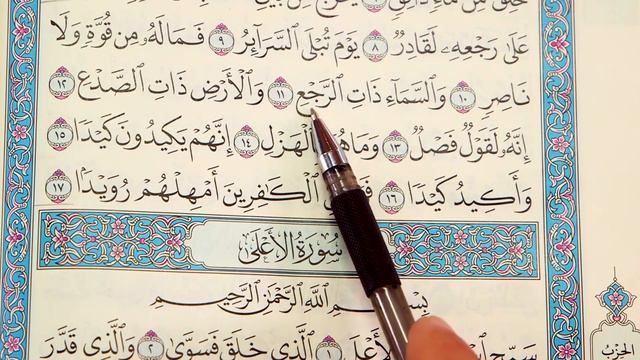 خُلِقَ مِن مَّآءٍ دَافِقٍ
عَلَىٰ رَجْعِهِۦ لَقَادِرٌ ٨ يَوْمَ تُبْلَى ٱلسَّرَآئِرُ ٩ فَمَا لَهُۥ مِن قُوَّةٍ وَلَا
نَاصِرٍ ١٠ وَٱلسَّمَآءِ ذَاتِ ٱلرَّجْعِ ١١ وَٱلْأَرْضِ ذَاتِ ٱلصَّدْعِ ١٢
إِنَّهُۥ لَقَوْلٌ فَصْلٌ ١٣ وَمَا هُوَ ٱلْهَزْلِ ١٤ إِنَّهُمْ يَكِيدُونَ كَيْدًا ١٥
وَأَكِيدُ كَيْدًا ١٦ ٱلْكَٰفِرِينَ أَمْهِلْهُمْ رُوَيْدًۢا ١٧
سُورَةُ الْأَعْلَىٰ
بِسْمِ ٱللَّهِ ٱلرَّحْمَٰنِ ٱلرَّحِيمِ
سَبِّحِ ٱلْأَعْلَى ١ ٱلَّذِى خَلَقَ فَسَوَّىٰ ٢ وَٱلَّذِى قَدَّرَ
الحِزْبُ